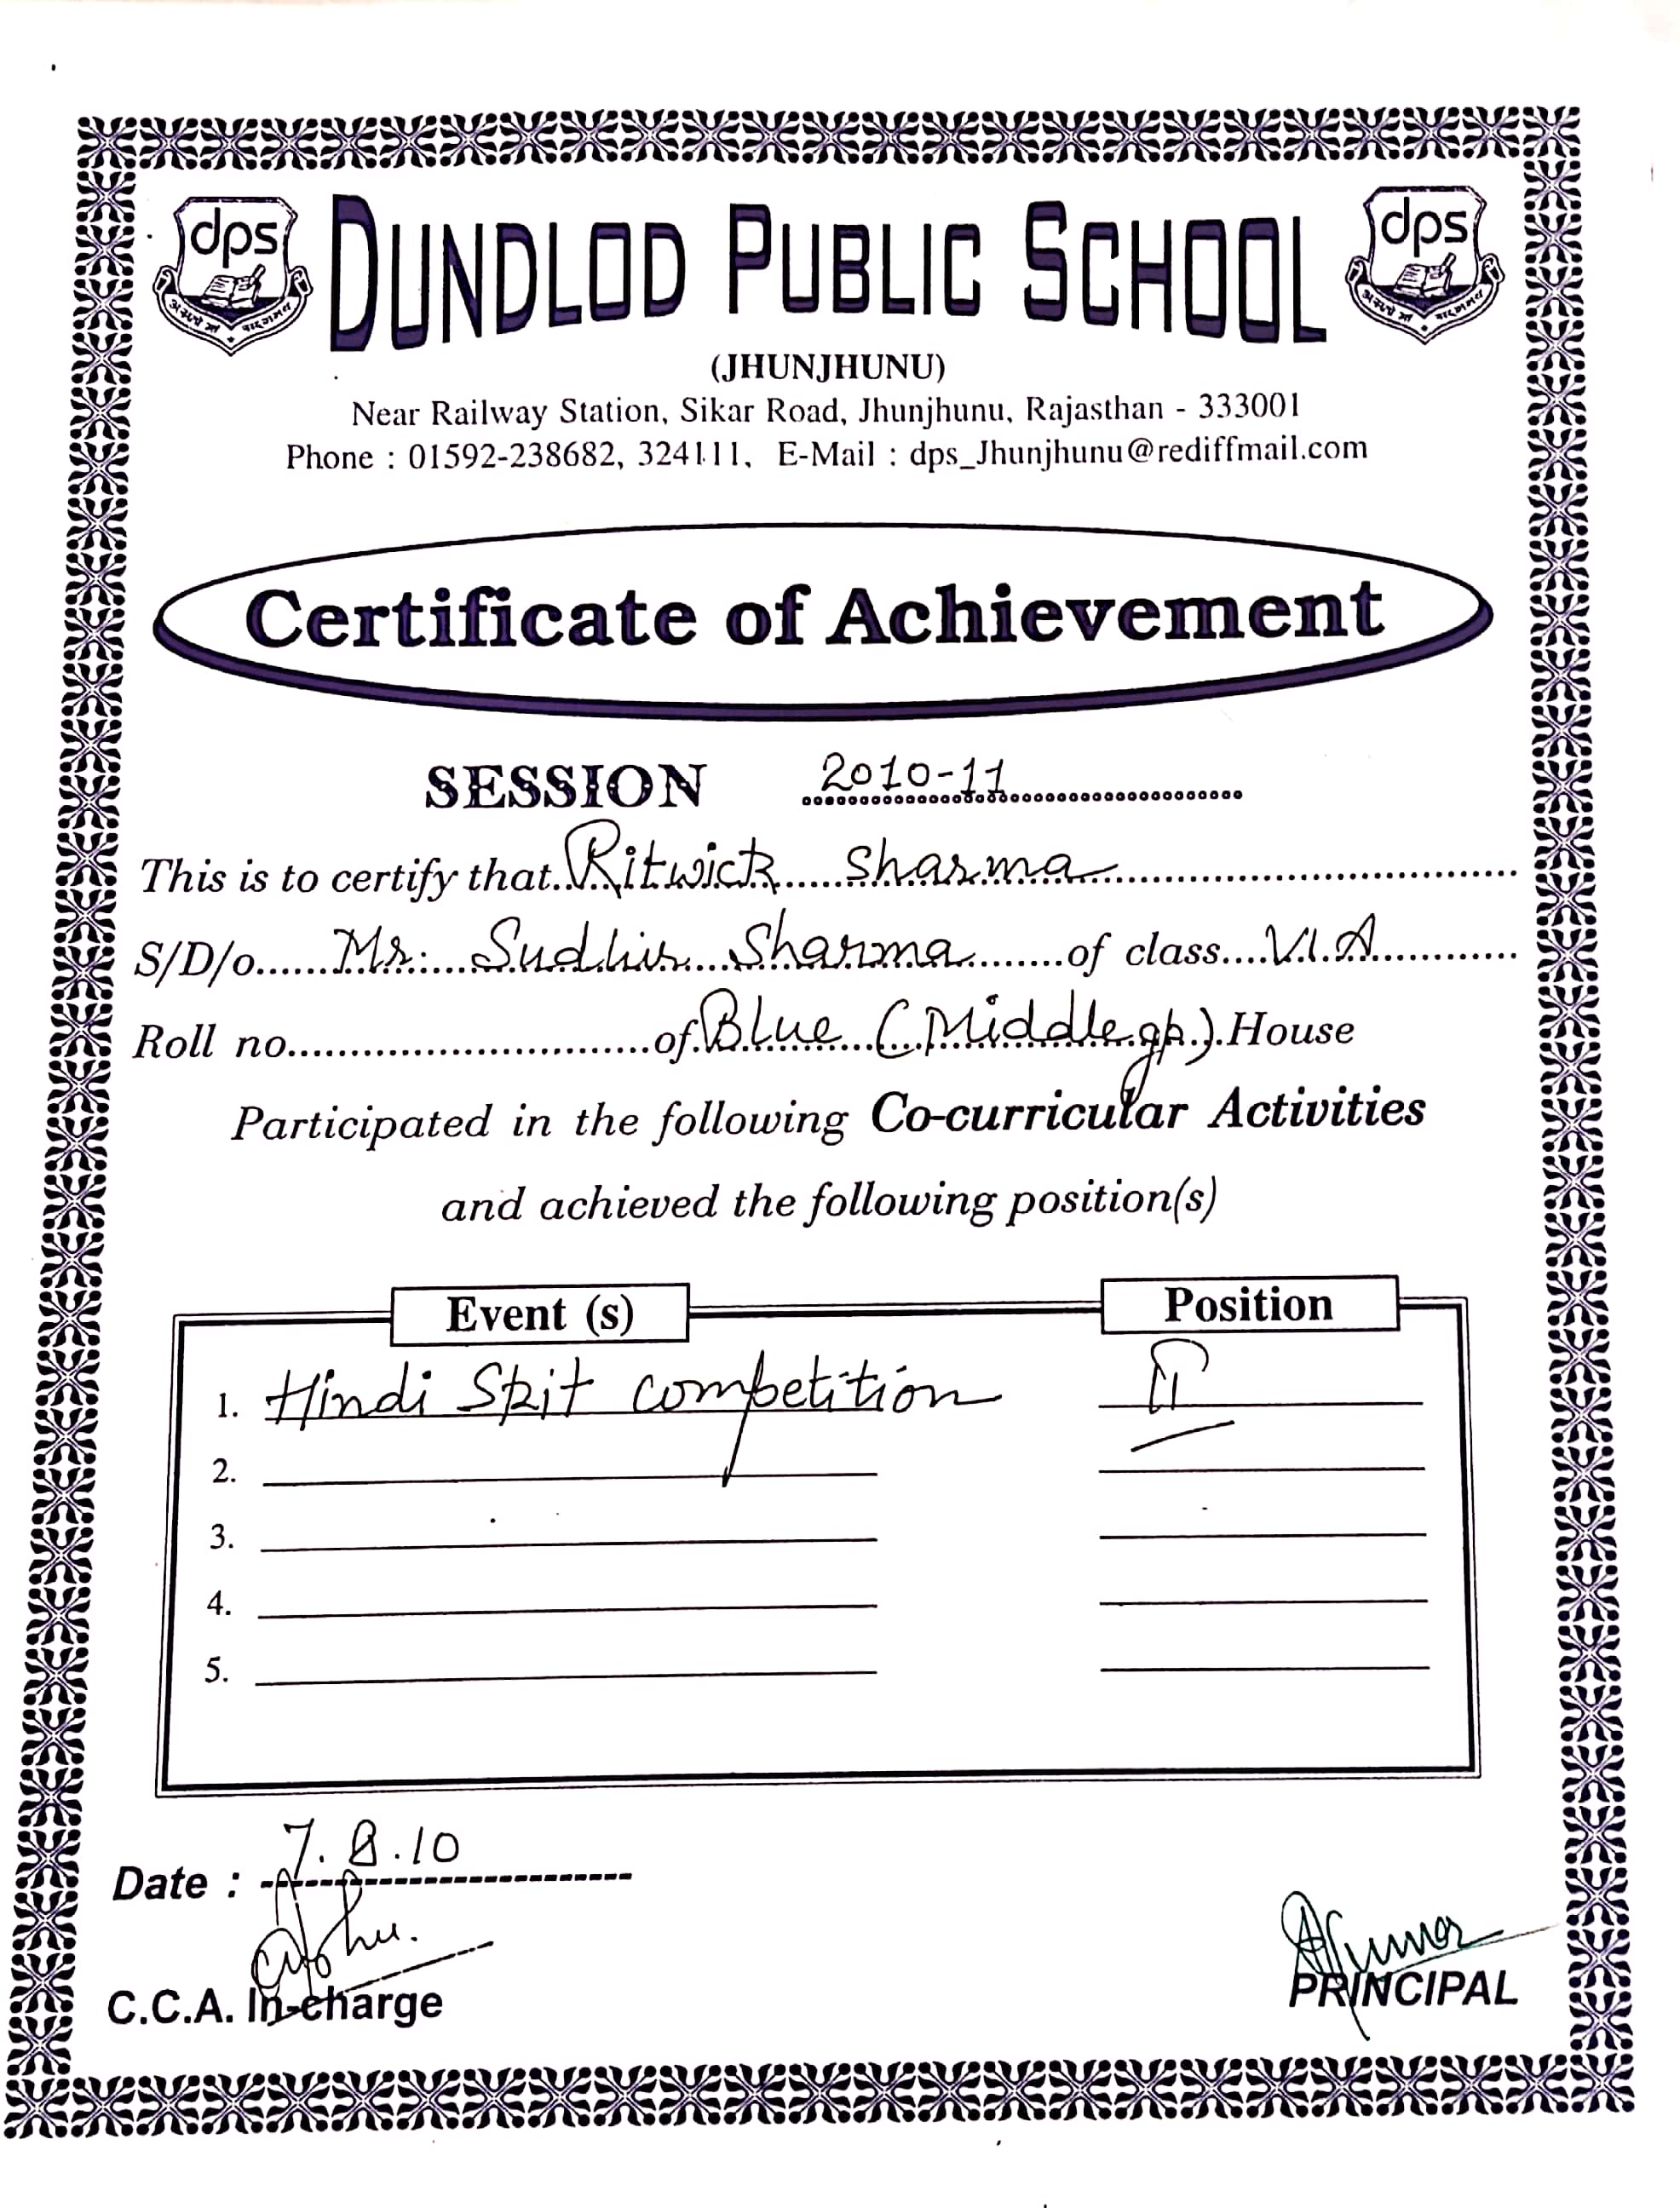 dps
DUNDLOD PUBLIC SCHOOL
dps
(JHUNJHUNU)
Near Railway Station, Sikar Road, Jhunjhunu, Rajasthan - 333001
Phone : 01592-238682, 324111, E-Mail : dps_Jhunjhunu@rediffmail.com
Certificate of Achievement
SESSION 2010-11
This is to certify that Ritwick Sharma
S/D/o Mr. Sudhir Sharma of class VI.A
Roll no. of Blue (Middle gp.) House
Participated in the following Co-curricular Activities
and achieved the following position(s)
Event (s) Position
1. Hindi Skit competition II
2.
3.
4.
5.
Date : 7.8.10
C.C.A. In-charge
PRINCIPAL